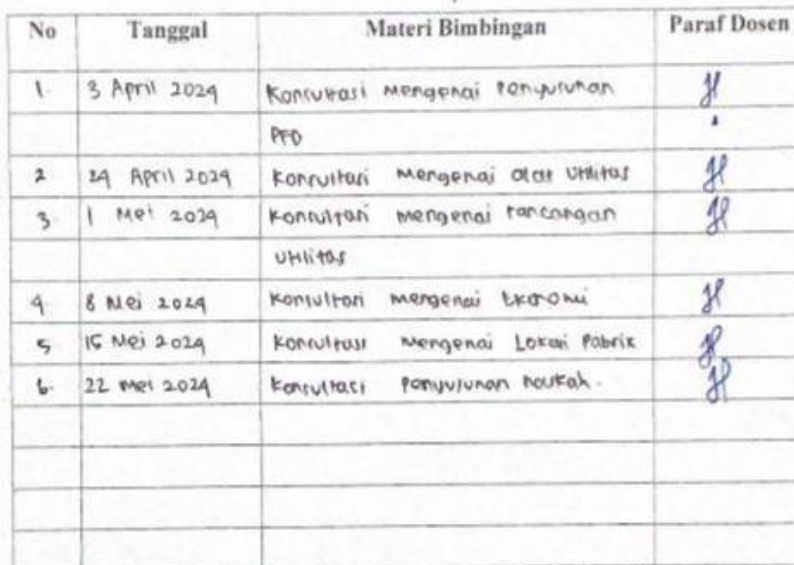 No Tanggal Materi Bimbingan Paraf Dosen
1. 3 April 2024 Konsultasi Mengenai Penyusunan
PFD
2 24 April 2024 Konsultasi Mengenai alat Utilitas
3. 1 Mei 2024 Konsultasi mengenai rancangan
Utilitas
4. 8 Mei 2024 Konsultasi mengenai Ekonomi
5 15 Mei 2024 Konsultasi Mengenai Lokasi Pabrik
6. 22 Mei 2024 Konsultasi Penyusunan naskah.